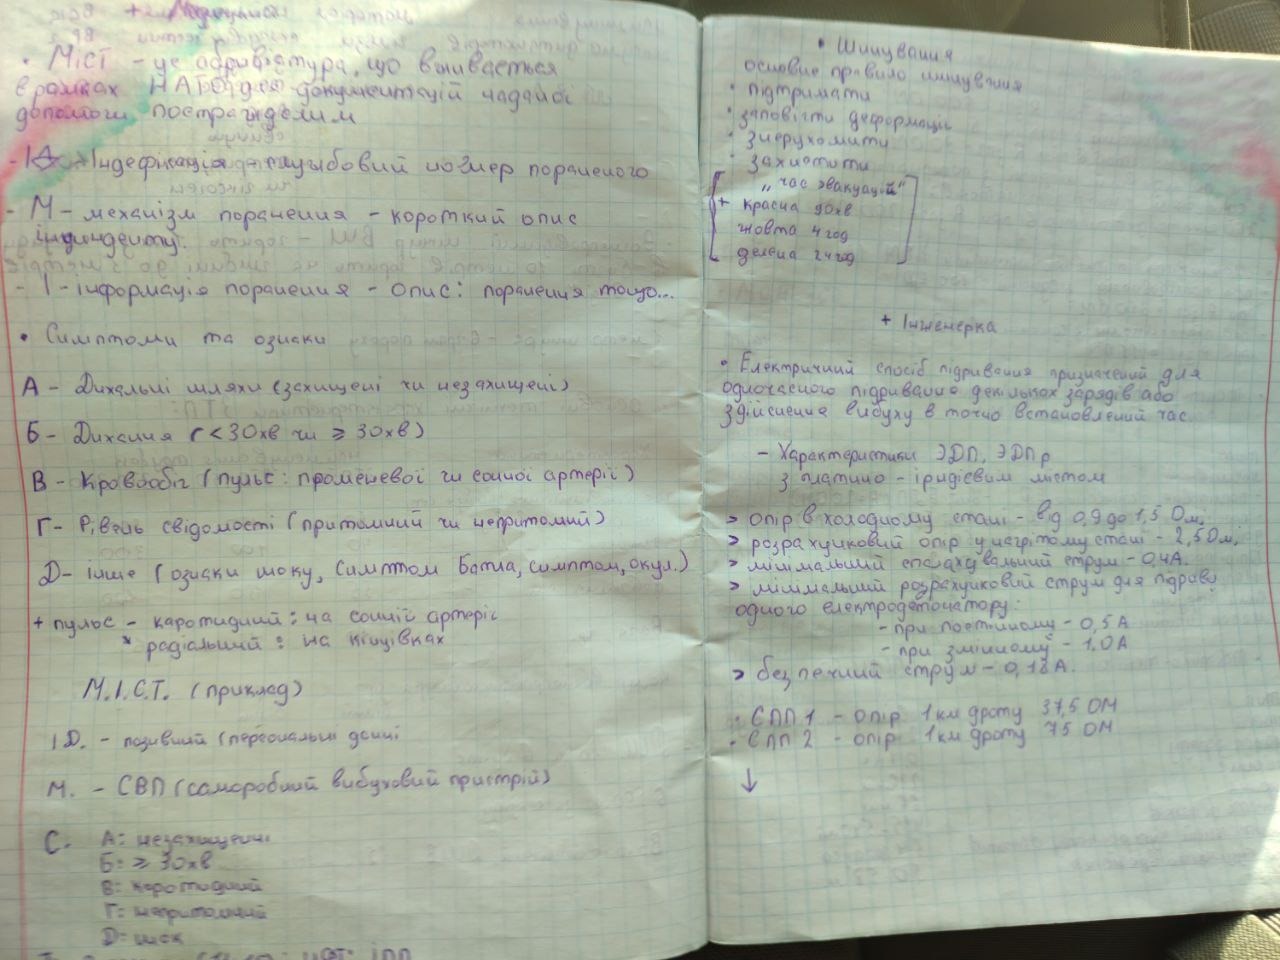 + Медицина
• МіСТ - це абривіатура, що вживається
в рамках НАТО для документацій наданої
допомоги пострадалим
- ID - Індефікація - службовий номер пораненого
- М - механізм поранення - короткий опис
індиндету.
- І - інформація поранення - опис: поранення тощо...
• Симптоми та ознаки
А - Дихальні шляхи (захищені чи незахищені)
Б - Дихання (< 30хв чи ≥ 30хв)
В - Кровообіг (пульс: променевої чи сонної артерії)
Г - Рівень свідомості (притомний чи непритомний)
D - інше (ознаки шоку, симптом Батла, симптом, окул.)
+ пульс - каротидний: на сонній артеріє
* радіальний: на кінцівках
М.І.С.Т. (приклад)
ID. - позивний (персональні данні
М. - СВП (саморобний вибуховий пристрій)
С. А: незахищенні
Б: ≥ 30хв
В: каротидний
Г: непритомний
D: шок
• Шинування
основне правило шинування
• підтримати
• заповігти деформації
• знерухомити
• захистити
„час эвакуацій"
+ красна 90хв
жовта 4 год
зелена 24год
+ Інженерка
• Електричний спосіб підривання призначений для
одночасного підривання декількох зарядів або
здійснення вибуху в точно встановлений час.
- Характеристики ЭДП, ЭДПр
з платино - іридієвим містом
> опір в холодному стані - від 0,9 до 1,5 Ом,
> розрахунковий опір у нагрітому стані - 2,5 Ом,
> мінімальний спалахувальний струм - 0,4А.
> мінімальний розрахунковий струм для підриву
одного електродетонатору:
- при постійному - 0,5 А
- при змінному - 1.0А
> безпечний струм - 0,18А.
• СПП 1 - опір 1 км дроту 37,5 ОМ
• СПП 2 - опір 1 км дроту 75 ОМ
↓